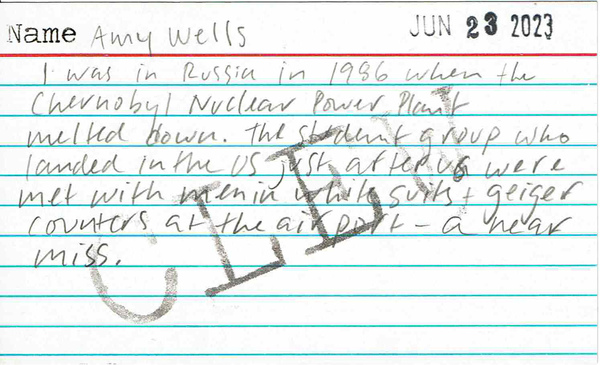 Name Amy Wells JUN 23 2023
I was in Russia in 1986 when the
Chernobyl Nuclear Power Plant
melted down. The student group who
landed in the US just after us were
met with men in white suits + geiger
counters at the airport – a near
miss.
CLEW